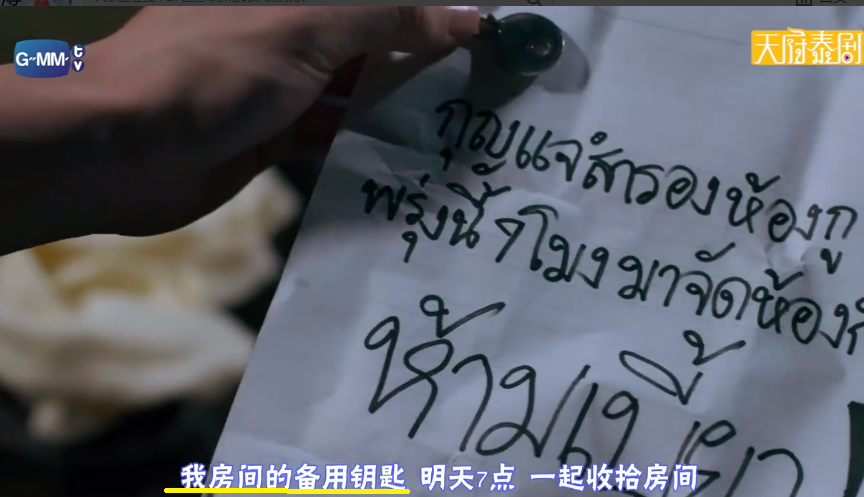 GMMtv
天府泰剧
กุญแจสำรองห้องกู
พรุ่งนี้ 7 โมง มาจัดห้อง
ห้ามเบี้ยว
我房间的备用钥匙 明天7点 一起收拾房间